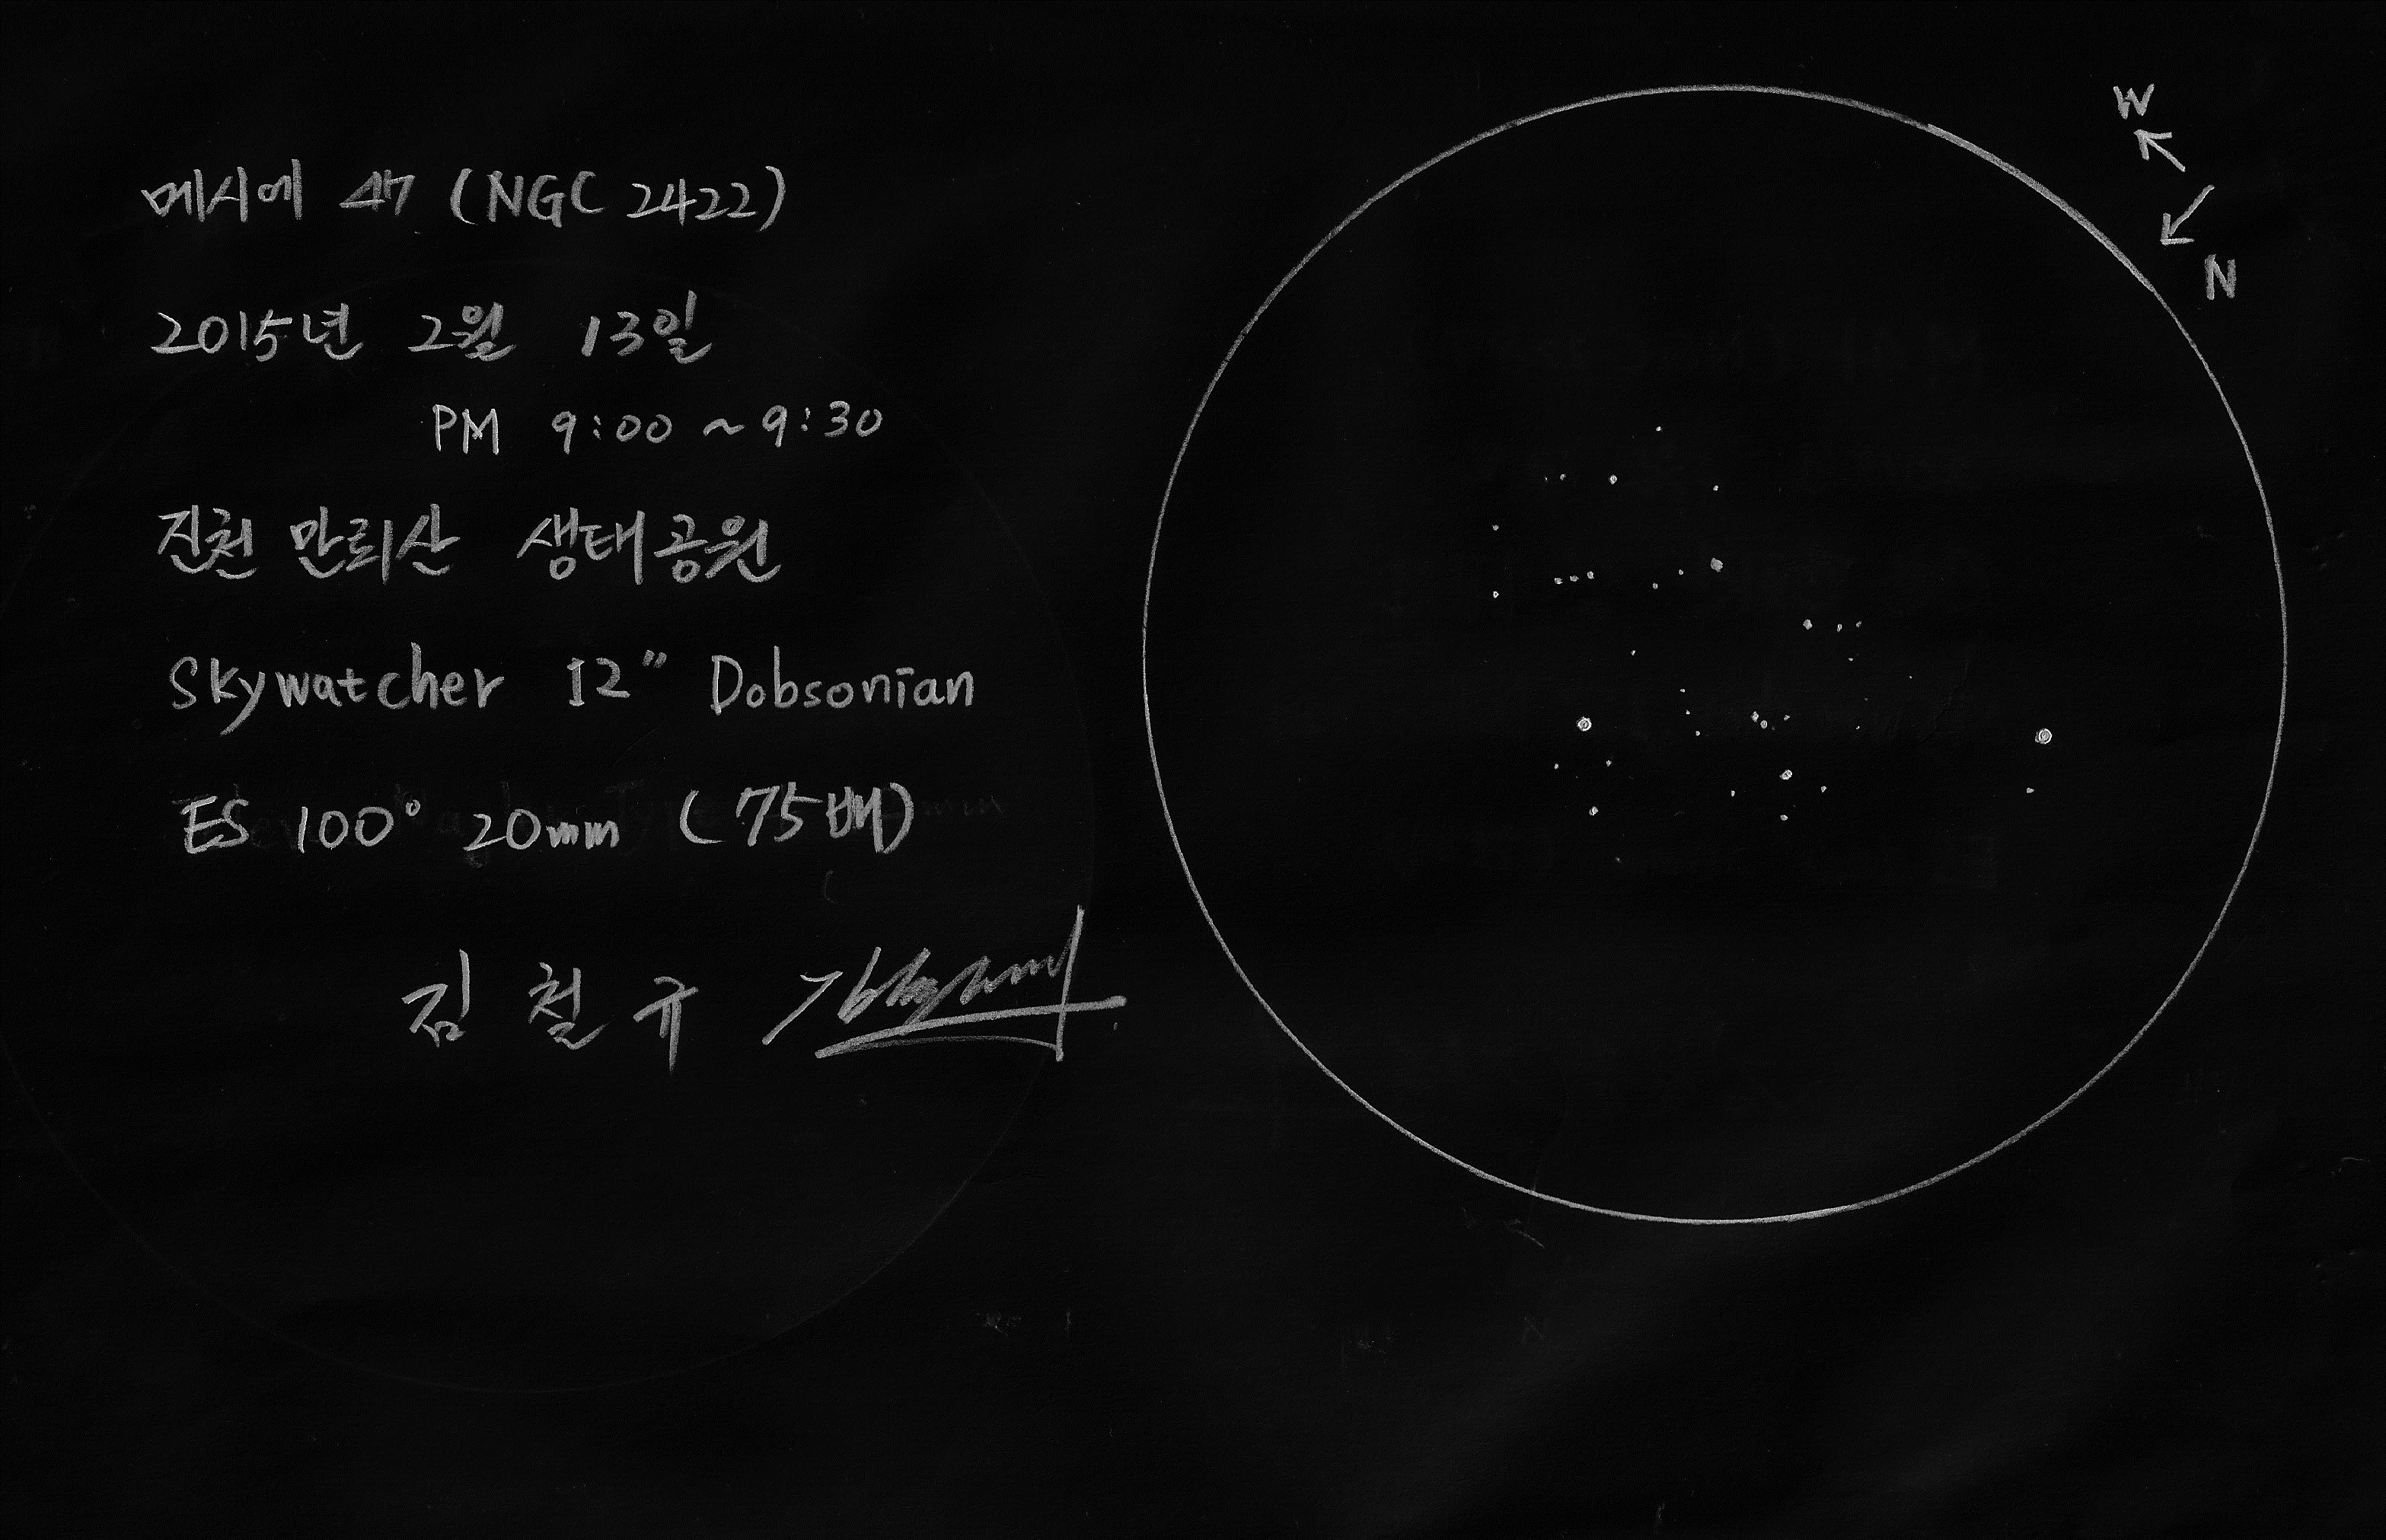 메시에 47 (NGC 2422)
2015년 2월 13일
PM 9:00 ~ 9:30
진천 만뢰산 생태공원
Skywatcher 12" Dobsonian
ES 100° 20mm (75배)
김철규
W
N